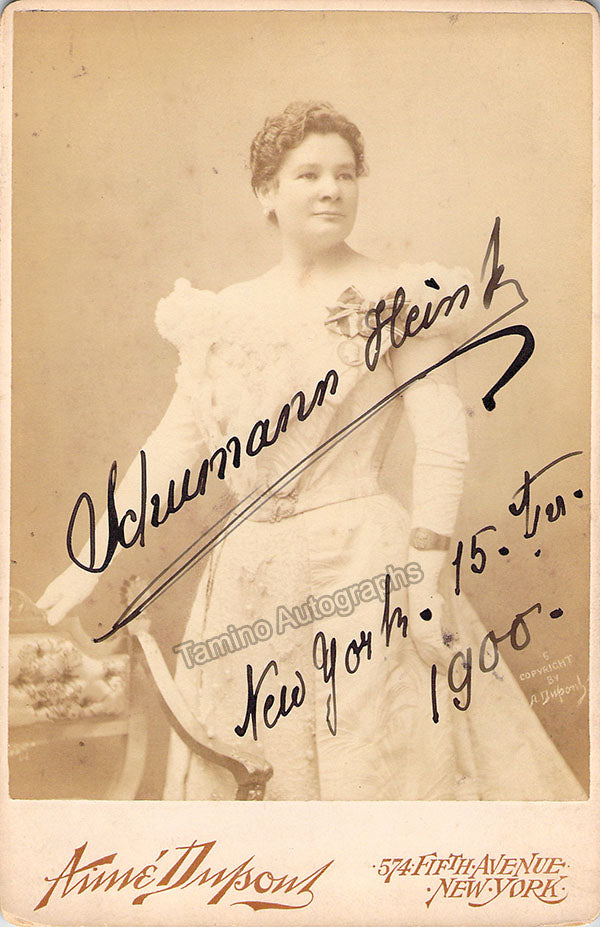 Schumann Heink
New York. 15.
1900.
Tamino Autographs
©
COPYRIGHT
BY
A. Dupont
Aimé Dupont
·574·FIFTH·AVENUE·
·NEW·YORK·